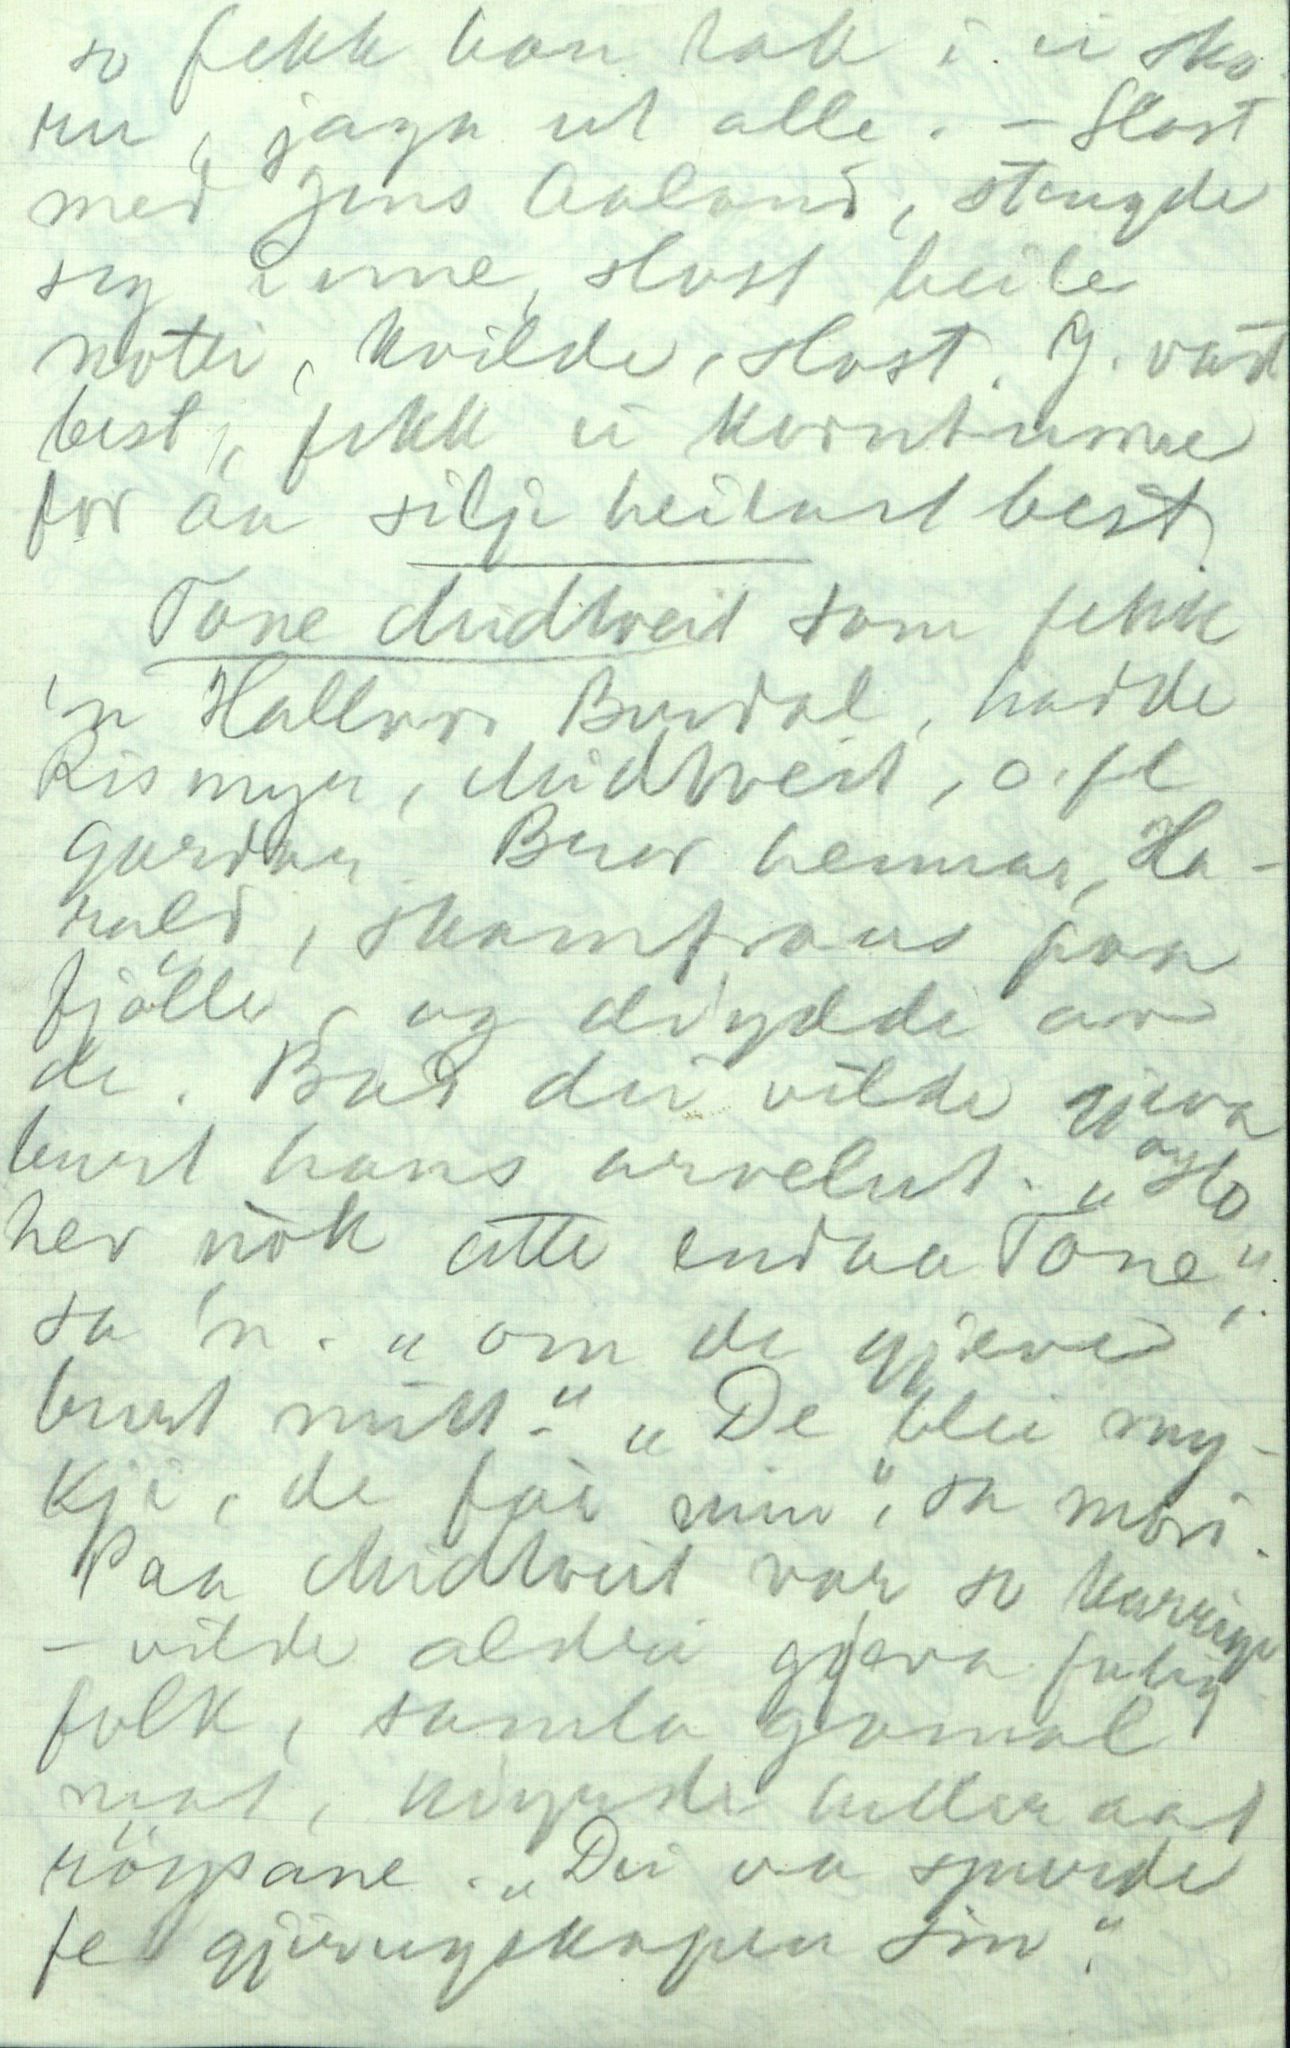 so fekk han tak i ei sko-
ru, jaga ut alle. – Slost
med Jens Aaland, stengde
seg inne, slost heile
notti, kvilde, slost. J. vart
best, fekk ei korntunne
for aa silji heitast best.
Tone Midtveit som fekk
'n Hallvor Burdal, hadde
Rismyr, Midtveit, o. fl
gardar. Bror hennar, Ha-
rald, skamfraus paa
fjölle, og döydde av
de. Bad dei vilde gjeva
burt hans arvelut. „og Do
her nok atte endaa Tone",
sa 'n. „om de gjever
burt mitt." „De blei my-
kji, de far min", sa mori.
Paa Midtveit var so karrige
– vilde aldri gjeva fatig
folk, samla gamal
mat, köyrde heller aat
röyspane. „Dei va spurde
fe gjerugskapen sin".